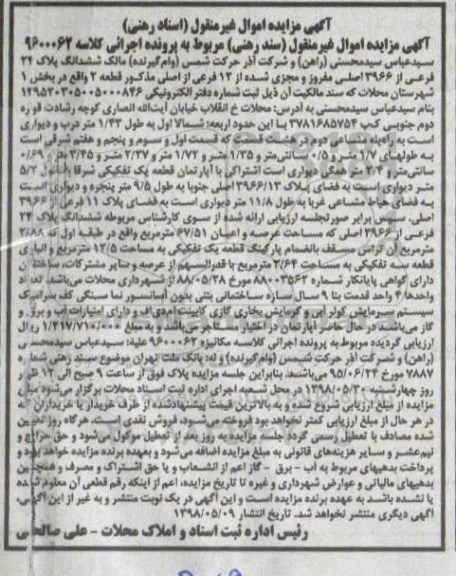 آگهی مزایده اموال غیرمنقول (اسناد رهنی)
آگهی مزایده اموال غیرمنقول (سند رهنی) مربوط به پرونده اجرائی کلاسه ۹۶۰۰۰۶۲
سیدعباس سیدمحسنی (راهن) و شرکت آذر حرکت شمس (وام‌گیرنده) مالک ششدانگ پلاک ۲۴
فرعی از ۳۹۶۶ اصلی مفروز و مجزی شده از ۱۲ فرعی از اصلی مذکور قطعه ۲ واقع در بخش ۱
شهرستان محلات که سند مالکیت آن ذیل ثبت شماره دفتر الکترونیکی ۱۳۹۵۲۰۳۰۵۰۰۵۰۰۰۸۴۶
بنام سیدعباس سیدمحسنی به آدرس: محلات خ انقلاب خیابان آیت‌الله انصاری کوچه رشادت قواره
دوم جنوبی ک.پ ۳۷۸۱۶۸۵۷۵۴ با این حدود اربعه: شمالا اول به طول ۱/۴۳ متر درب و دیواری
است به راه‌پله مشاعی دوم در هشت قسمت که قسمت اول و سوم و پنجم و هفتم شرقی است
به طولهای ۱/۷ متر و ۰/۵ سانتی‌متر و ۱/۳۵ متر و ۱/۷۲ متر و ۲/۳۷ متر و ۳/۴۵ متر و ۰/۶۹
سانتی‌متر و ۲/۴ متر همگی دیواری است اشتراکی با آپارتمان قطعه یک تفکیکی شرقا بطول ۵/۲
متر دیواری است به فضای پلاک ۳۹۶۶/۱۳ اصلی جنوبا به طول ۹/۵ متر پنجره و دیواری است
به فضای حیاط مشاعی غربا به طول ۱۱/۸ متر دیواری است به فضای پلاک ۱۱ فرعی از ۳۹۶۶
اصلی. سپس برابر صورتجلسه ارزیابی ارائه شده از سوی کارشناس مربوطه ششدانگ پلاک ۲۴
فرعی از ۳۹۶۶ اصلی که مساحت عرصه و اعیان ۶۷/۵۱ مترمربع واقع در طبقه اول که ۲/۸۸
مترمربع آن تراس مسقف بانضمام پارکینگ قطعه یک تفکیکی به مساحت ۱۲/۵ مترمربع و انباری
قطعه سه تفکیکی به مساحت ۲/۶۴ مترمربع با قدرالسهم از عرصه و سایر مشترکات، ساختمان
دارای گواهی پایانکار شماره ۸۸۰۰۳۵۶۲ مورخ ۸۸/۰۵/۲۸ از شهرداری محلات می‌باشد، تعداد
واحدها ۴ واحد قدمت بنا ۹ سال سازه ساختمانی بتنی بدون آسانسور نما سنگی کف سرامیک
سیستم سرمایش کولر آبی و گرمایش بخاری گازی کابینت ام‌دی‌اف و دارای امتیازات آب و برق و
گاز می‌باشد در حال حاضر آپارتمان در اختیار مستاجر می‌باشد و به مبلغ ۱/۴۱۷/۷۱۰/۰۰۰ ریال
ارزیابی گردیده مربوط به پرونده اجرائی کلاسه مکانیزه ۹۶۰۰۰۶۲ علیه: سیدعباس سیدمحسنی
(راهن) و شرکت آذر حرکت شمس (وام‌گیرنده) و له: بانک ملت تهران موضوع سند رهنی شماره
۷۸۸۷ مورخ ۹۵/۰۶/۲۴ می‌باشند. بنابراین جلسه مزایده پلاک فوق از ساعت ۹ صبح الی ۱۲ ظهر
روز چهارشنبه ۱۳۹۸/۰۵/۳۰ در محل شعبه اجرای اداره ثبت اسناد محلات برگزار می‌شود مبلغ
مزایده از مبلغ ارزیابی شروع شده و به بالاترین قیمت پیشنهادشده از طرف خریدار یا خریداران که
در هر حال از مبلغ ارزیابی کمتر نخواهد بود فروخته می‌شود، فروش نقدی است. هرگاه روز تعیین
شده مصادف با تعطیل رسمی گردد جلسه مزایده به روز بعد از تعطیل موکول می‌شود و حق حراج و
نیم‌عشر و سایر هزینه‌های قانونی به مبلغ مزایده اضافه می‌شود و بعهده برنده مزایده خواهد بود و
پرداخت بدهیهای مربوط به آب - برق - گاز اعم از انشعاب و یا حق اشتراک و مصرف و همچنین
بدهیهای مالیاتی و عوارض شهرداری و غیره تا تاریخ مزایده، اعم از اینکه رقم قطعی آن معلوم شده
یا نشده باشد به عهده برنده مزایده است و این آگهی در یک نوبت منتشر و به غیر از این آگهی،
آگهی دیگری منتشر نخواهد شد. تاریخ انتشار ۱۳۹۸/۰۵/۰۹
رئیس اداره ثبت اسناد و املاک محلات - علی صالحی